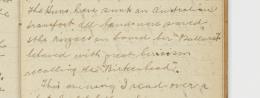 the Huns, have sunk an Australian
transport. All hands were saved
the Anzacs on board her "Ballarat"
behaved with great heroism
recalling the "Birkenhead".
This evening I read over a